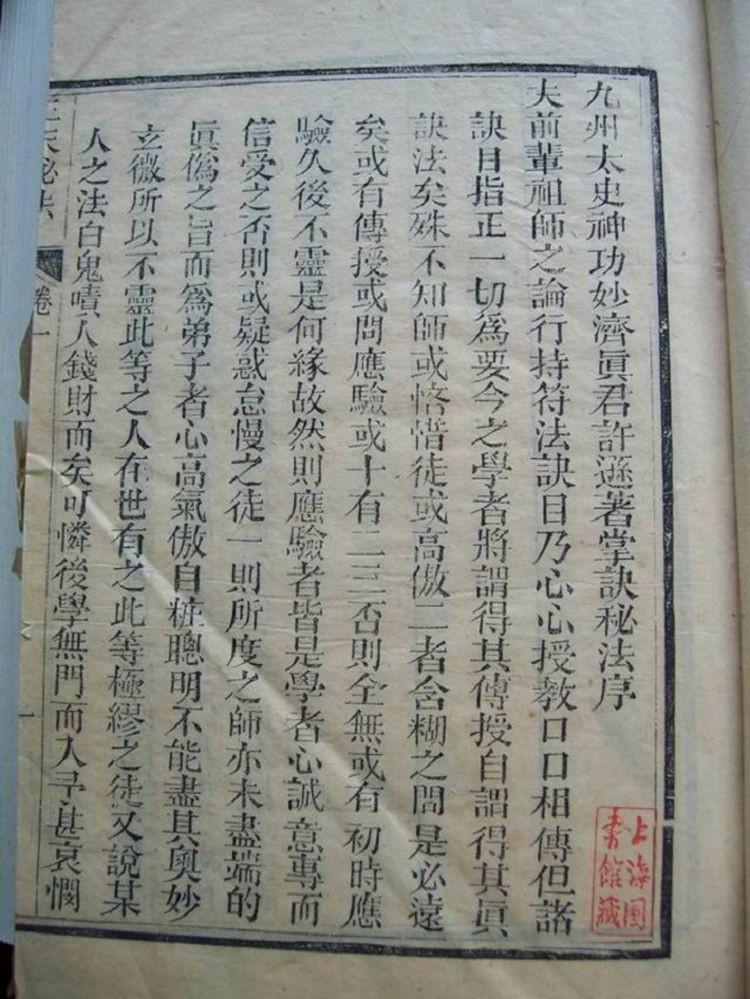 九州太史神功妙濟眞君許遜著掌訣秘法序
夫前輩祖師之論行持符法訣目乃心心授教口口相傳但諸
訣目指正一切爲要今之學者將謂得其傳授自謂得其眞
訣法矣殊不知師或悋惜徒或高傲二者含糊之間是必遠
矣或有傳授或問應驗或十有二三否則全無或有初時應
驗久後不靈是何緣故然則應驗者皆是學者心誠意專而
信受之否則或疑惑怠慢之徒一則所度之師亦未盡端的
眞僞之旨而爲弟子者心高氣傲自粧聰明不能盡其奧妙
玄微所以不靈此等之人在世有之此等極繆之徒又說某
人之法白鬼嘖人錢財而矣可憐後學無門而入寻甚哀憫
秘法
卷一
一
上海图
書館藏